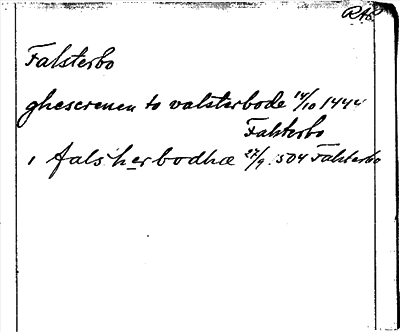 RAÖ
Falsterbo
ghescreuen to valsterbode 14/10 1444
Falsterbo
i falsherbodhæ 27/9 1504 Falsterbo